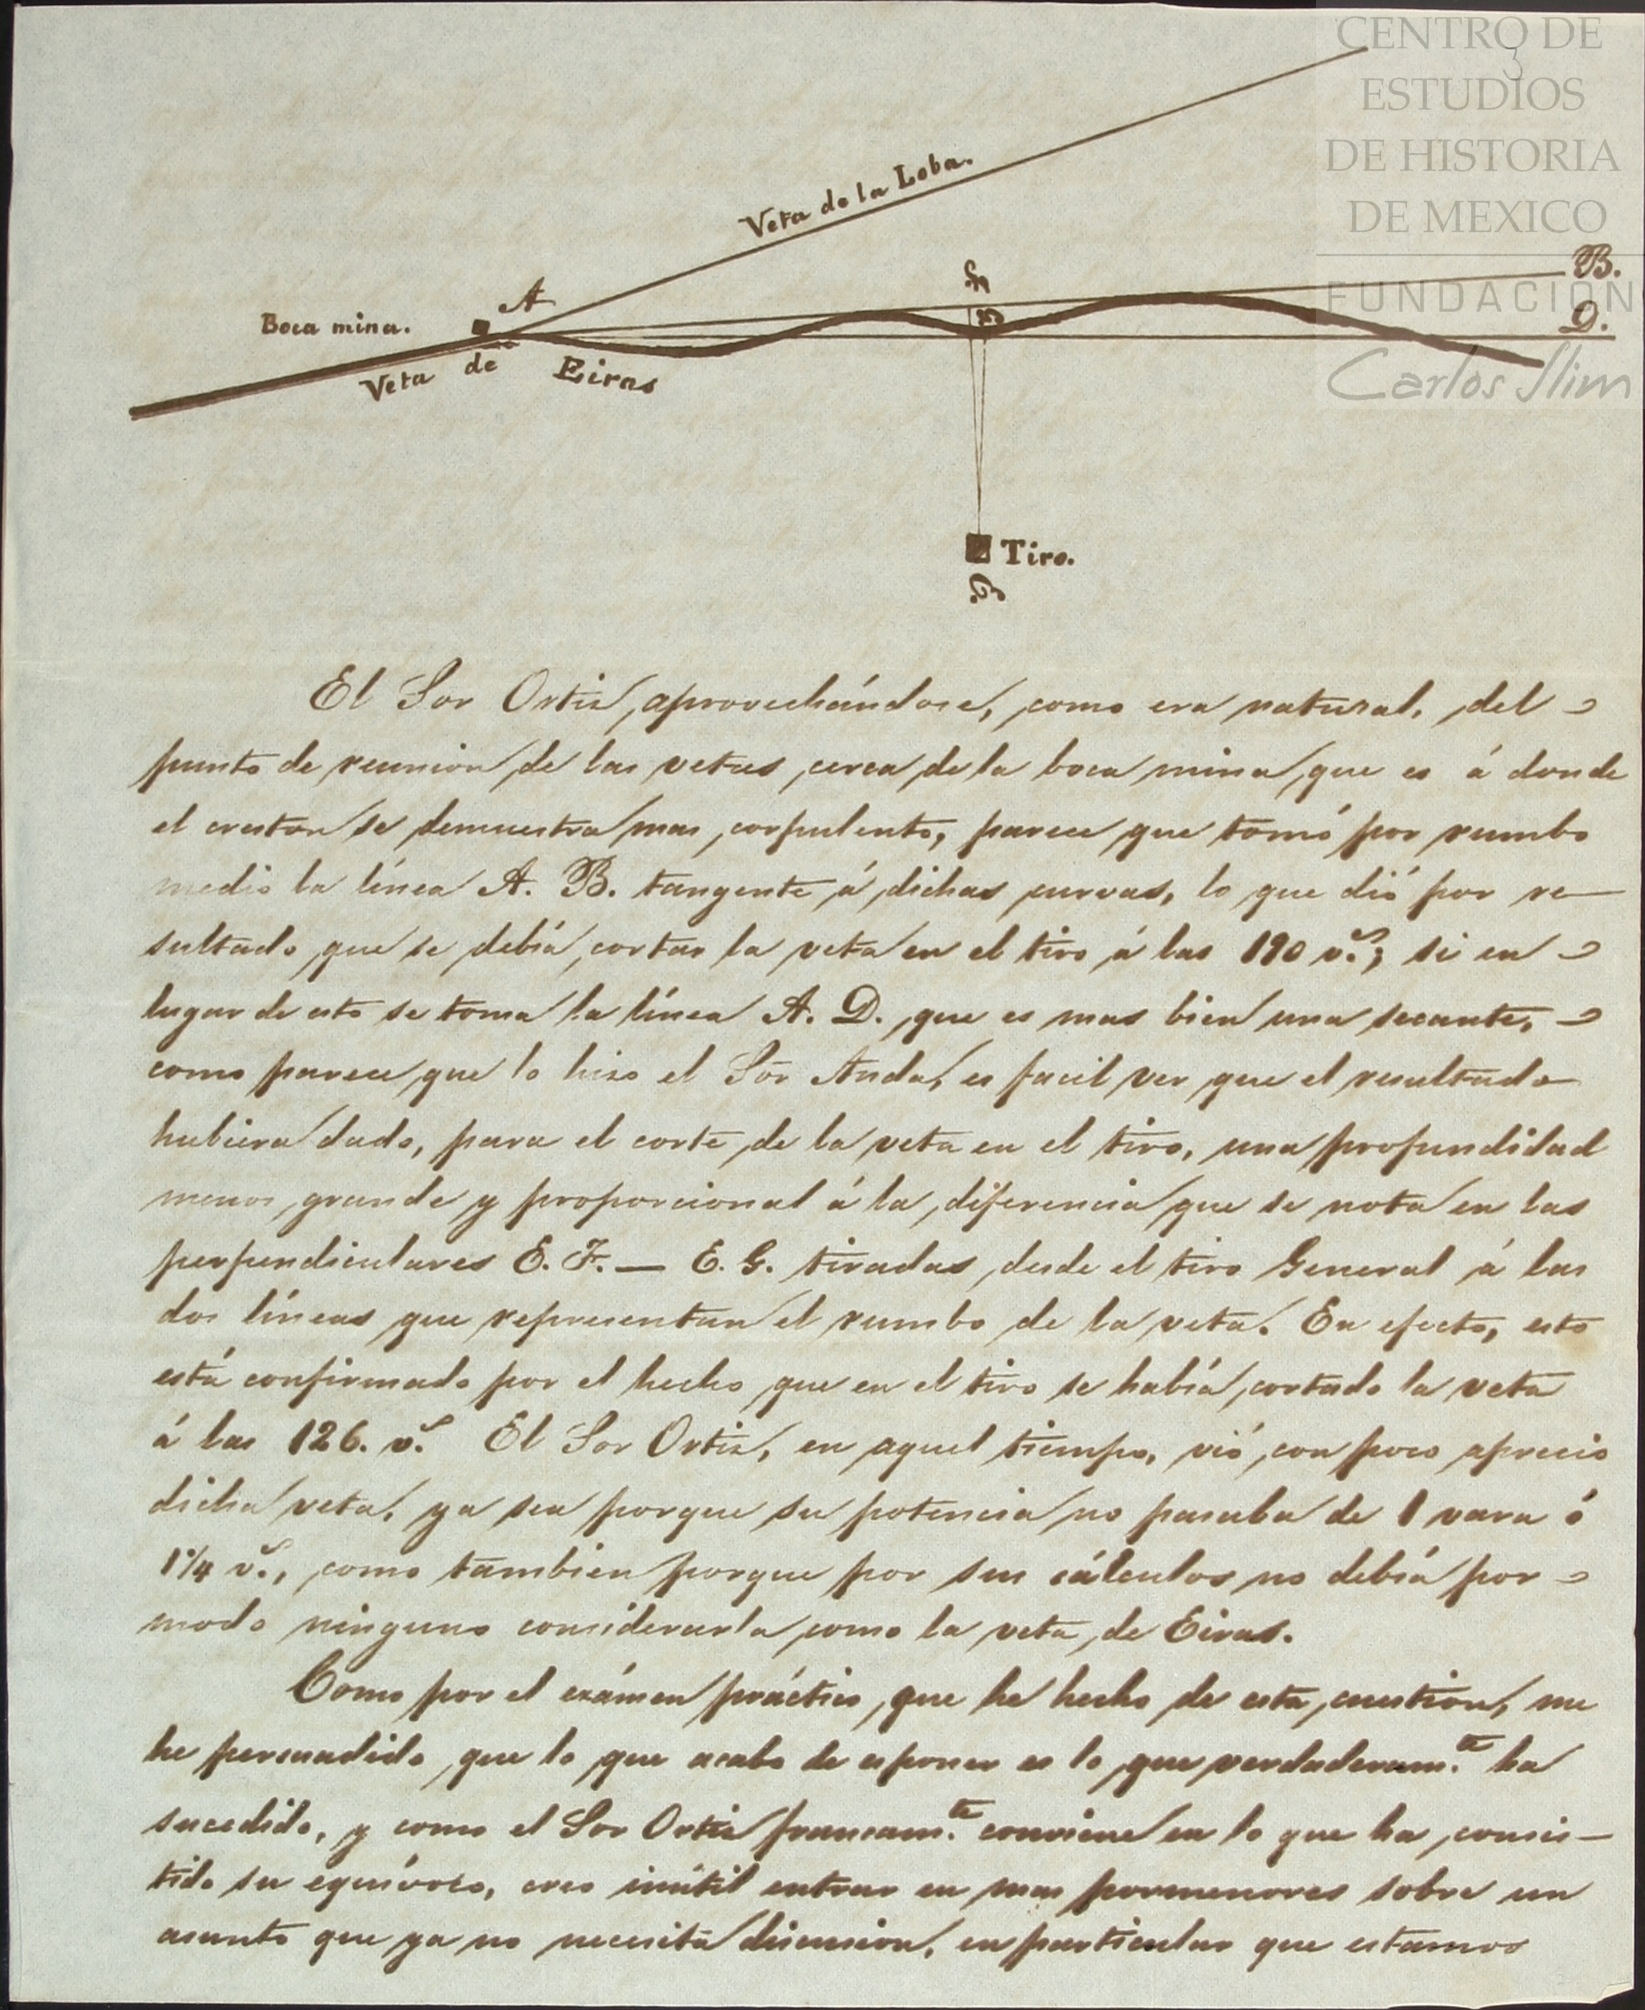 CENTRO DE
ESTUDIOS
DE HISTORIA
DE MEXICO
FUNDACIÓN
Carlos Slim
3
Veta de la Loba.
F.
B.
A
Boca mina.
E
D.
Veta de Eiras
Tiro.
G.
El Sor Ortiz, aprovechándose, como era natural, del
punto de reunion de las vetas cerca de la boca mina, que es á donde
el creston se demuestra mas corpulento, parece que tomó por rumbo
medio la línea A. B. tangente á dichas curvas, lo que dió por re-
sultado que se debía cortar la veta en el tiro á las 190 vs.; si en
lugar de esto se toma la línea A. D. que es mas bien una secante,
como parece que lo hizo el Sōr Anda, es facil ver que el resultado
hubiera dado, para el corte de la veta en el tiro, una profundidad
menos grande y proporcional á la diferencia que se nota en las
perpendiculares E. F. — E. G. tiradas desde el tiro General á las
dos líneas que representan el rumbo de la veta. En efecto, esto
está confirmado por el hecho que en el tiro se había cortado la veta
á las 126. vs. El Sor Ortiz, en aquel tiempo, vió con poco aprecio
dicha veta, ya sea porque su potencia no pasaba de 1 vara ó
1¼ vs., como tambien porque por sus cálculos no debía por
modo ninguno considerarla como la veta de Eiras.
Como por el exámen práctico que he hecho de esta cuestion, me
he persuadido que lo que acabo de esponer es lo que verdaderam.te ha
sucedido, y como el Sor Ortiz francam.te conviene en lo que ha consis-
tido su equívoco, creo inútil entrar en mas pormenores sobre un
asunto que ya no necesita discusion, en particular que estamos